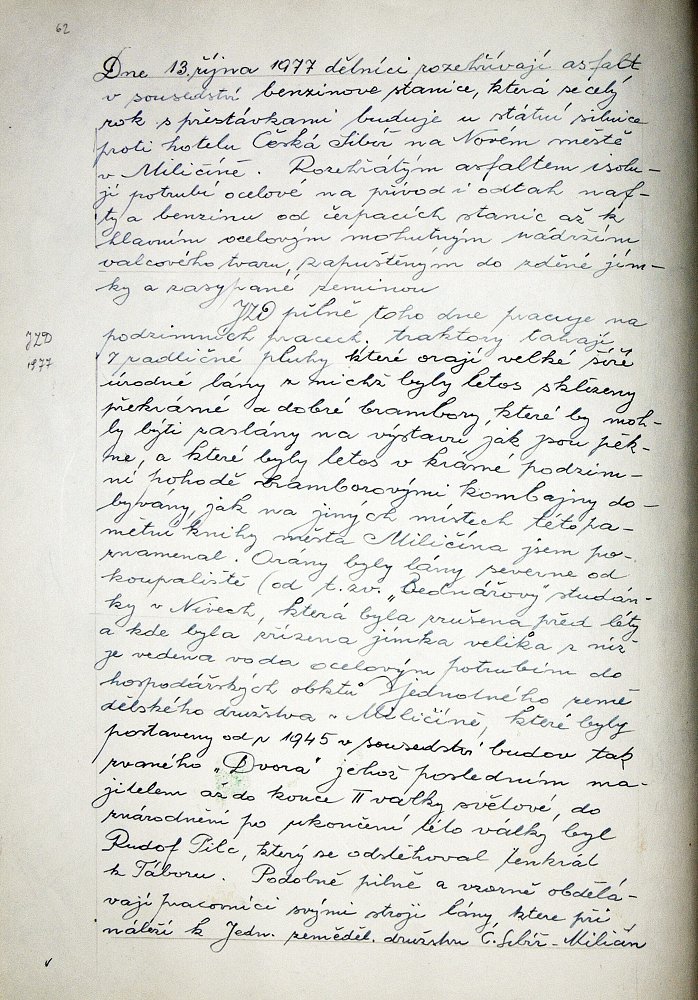 62
Dne 13. října 1977 dělníci rozehřívají asfalt
v sousedství benzinové stanice, která se celý
rok s přestávkami buduje u státní silnice
proti hotelu Česká Sibiř na Novém městě
v Miličíně. Rozehřátým asfaltem isolu-
jí potrubí ocelové na přívod i odtah naf-
ty a benzinu od čerpacích stanic až k
hlavním ocelovým mohutným nádržím
valcového tvaru, zapuštěným do zděné jím-
ky a zasypané zeminou
JZD pilně toho dne pracuje na
JZD
1977
podzimních pracech. traktory tahají
7 radličné pluhy které orají velké šíře
úrodné lány z nichž byly letos sklizeny
překrásné a dobré brambory, které by moh-
ly býti zaslány na výstavu jak jsou pěk-
ne, a které byly letos v krásné podzim-
ní pohodě bramborovými kombajny do-
byvány, jak na jiných místech této pa-
metní knihy města Miličína jsem po-
znamenal. Orány byly lány severne od
koupaliště (od t. zv. „Bednářovy studán-
ky v Nivech, která byla zrušena před léty
a kde byla zřízena jímka velika z níž
je vedena voda ocelovým potrubím do
hospodářských obktů Jednotného země
dělského družstva v Miličíně, které byly
postaveny od r 1945 v sousedství budov tak
zvaného „Dvora" jehož posledním ma-
jitelem až do konce II valky světové, do
znárodnění po ukončení této války byl
Rudof Pilc, který se odstěhoval tenkrát
k Táboru. Podobně pilně a vzorně obdělá-
vají pracovníci svými stroji lány, ktere pří
náleží k Jedn. zeměděl. družstvu Č. Sibiř - Miličín